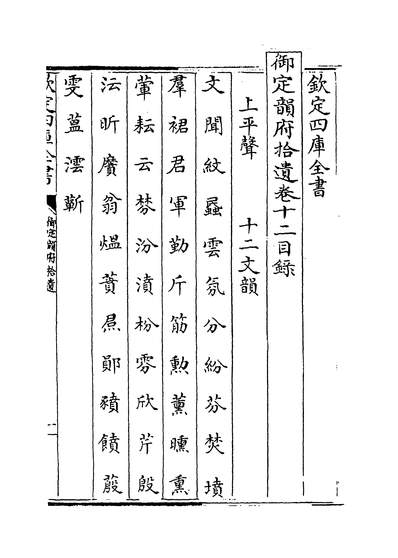 欽定四庫全書
御定韻府拾遺卷十二目錄
上平聲 十二文韻
文聞紋蟁雲氛分紛芬焚墳
羣裙君軍勤斤筋勲薰曛熏
葷耘云棼汾濆枌雰欣芹殷
沄昕黂翁熅蕡焄鄖豶饙蒑
雯蒀澐蘄
欽定四庫全書
御定韻府拾遺